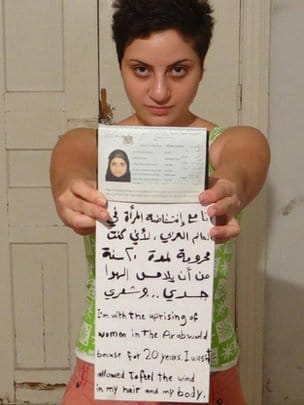 أنا مع إنتفاضة المرأة في
العالم العربي، لأني كنت
محرومة لمدة ٢٠ سنة
من أن يلامس الهوا
جسدي .. وشعري
I'm with the uprising of
women in The Arab world
because for 20 years. I wasn't
allowed To feel the wind
in my hair and my body.